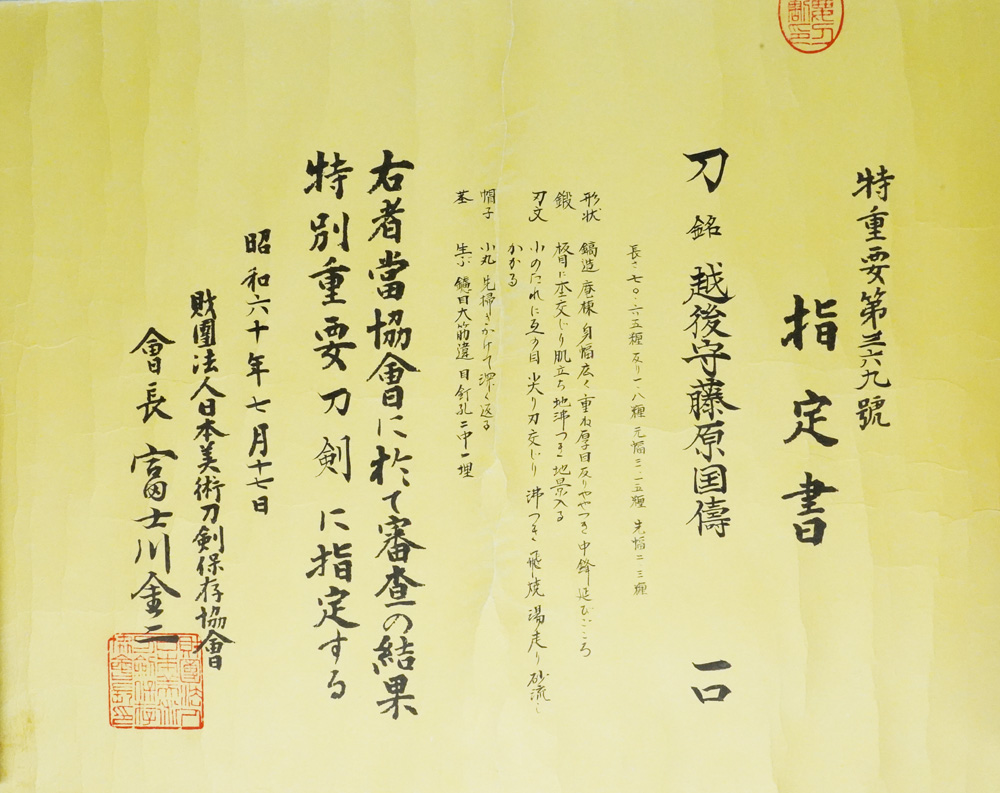 特重要第三六九號
指定書
刀 銘 越後守藤原国儔 一口
長サ 七〇・六五糎 反り一・八糎 元幅三・一五糎 先幅二・三糎
形状 鎬造 庵棟 身幅広く 重ね厚目 反りややつき 中鋒延びごころ
鍛 板目に杢交じり 肌立ち 地沸つき 地景入る
刃文 小のたれに互の目 尖り刃交じり 沸つき 飛焼 湯走り 砂流し
かかる
帽子 小丸 先掃きかけて深く返る
茎 生ぶ 鑢目大筋違 目釘孔二中一埋
右者當協會に於て審査の結果
特別重要刀剣に指定する
昭和六十年七月十七日
財團法人日本美術刀剣保存協會
會長 富士川金二